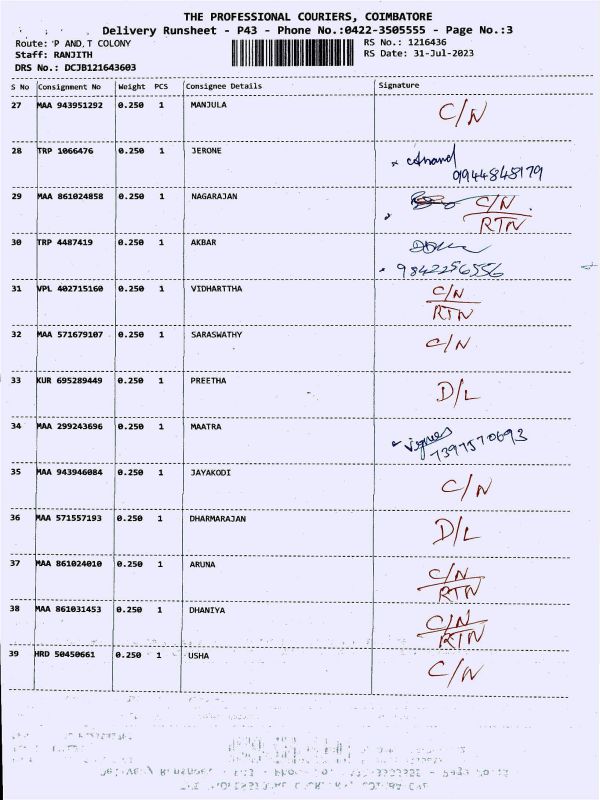 THE PROFESSIONAL COURIERS, COIMBATORE
Delivery Runsheet - P43 - Phone No.:0422-3505555 - Page No.:3
Route: P AND,T COLONY RS No.: 1216436
Staff: RANJITH RS Date: 31-Jul-2023
DRS No.: DCJB121643603
S No Consignment No Weight PCS Consignee Details Signature
27 MAA 943951292 0.250 1 MANJULA C/N
28 TRP 1066476 0.250 1 JERONE Anand
9944848179
29 MAA 861024858 0.250 1 NAGARAJAN C/N
RTN
30 TRP 4487419 0.250 1 AKBAR
9842256556
31 VPL 402715160 0.250 1 VIDHARTTHA C/N
RTN
32 MAA 571679107 0.250 1 SARASWATHY C/N
33 KUR 695289449 0.250 1 PREETHA D/L
34 MAA 299243696 0.250 1 MAATRA Vignes
7397570693
35 MAA 943946084 0.250 1 JAYAKODI C/N
36 MAA 571557193 0.250 1 DHARMARAJAN D/L
37 MAA 861024010 0.250 1 ARUNA C/N
RTN
38 MAA 861031453 0.250 1 DHANIYA C/N
RTN
39 HRD 50450661 0.250 1 USHA C/N